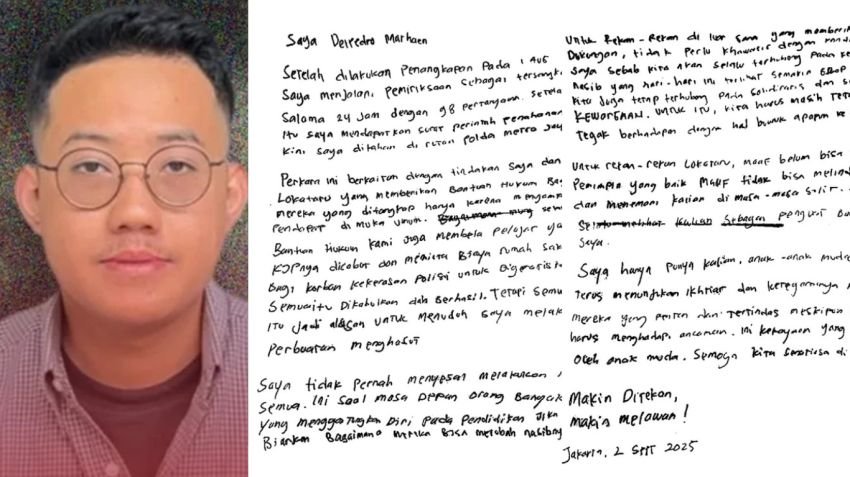 Saya Delpedro Marhaen
Setelah dilakukan Penangkapan Pada 1
Saya menjalani pemiriksaan sebagai tersangk
Salama 24 Jam dengan 98 pertanyaan. Setela
itu saya mendapatkan surat perintah penahanan
Kini saya ditahan di rutan polda metro Jay
Perkara ini berkaitan dengan tindakan saya dan
Lokataru yang memberikan Bantuan Hukum Ba
mereka yang ditangkap hanya karena menyam
Pendapat di muka umum.
Bantuan Hukum kami juga membela pelajar ya
KJPnya dicabut dan meminta Biaya rumah sak
Bagi korban kekerasan Polisi untuk Digratisk
Semua itu Dikabulkan dan Berhasil. Tetapi semu
itu jadi alasan untuk menuduh saya melak
perbuatan menghasut
Saya tidak Pernah menyesan melakukan
Semua. Ini soal masa depan orang Banyak
yang menggantungkan Diri pada Pendidikan Jika
Biarkan Bagaimana mereka Bisa merubah nasibny
Untuk Rekan-Rekan di luar sana yang memberi
Dukungan, tidak perlu khawatir dengan
Saya sebab kita akan selalu terhubung pada
nasib yang hari-hari ini terlihat semakin
Kita juga tetap terhubung pada solidaritas dan
KEWARASAN. untuk itu, kita harus masih Teta
Tegak berhadapan dengan hal buruk apapun ke
Untuk rekan-rekan Lokataru, maaf belum bisa
Pemimpin yang baik Maaf tidak bisa melind
dan menemani kalian di masa-masa sulit.
kalian sebagai penguat Ba
saya.
Saya hanya punya kalian, anak-anak muda
Terus menunjukan ikhtiar dan keteguhannya
mereka yang penting dan Tertindas meskipun
harus menghadapi ancaman. Ini kekayaan yang
oleh anak muda. Semoga kita senatiasa di
Makin Ditekan,
makin melawan!
Jakarta, 2 SEPT 2025